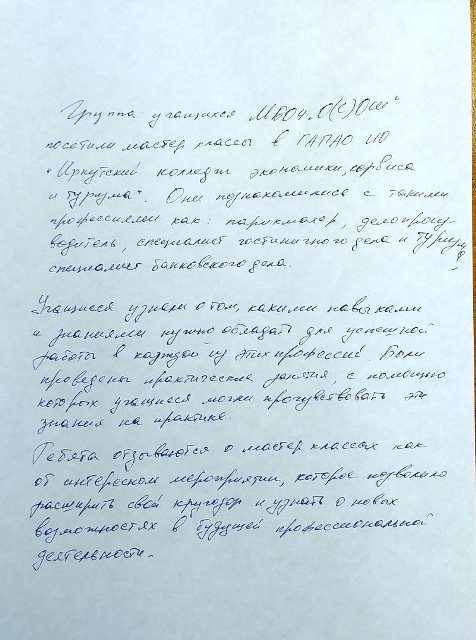 Группа учащихся МБОУ "О(С)ОШ"
посетили мастер классы в ГАПАО ИО
"Иркутский колледж экономики, сервиса
и туризма". Они познакомились с такими
профессиями как: парикмахер, делопроиз-
водитель, специалист гостиничного дела и туризма,
специалист банковского дела.
Учащиеся узнали о том, какими навыками
и знаниями нужно обладать для успешной
работы в каждой из этих профессий. Были
проведены практические занятия, с помощью
которых учащиеся могли прочувствовать эти
знания на практике.
Ребята отзываются о мастер классах как
об интересном мероприятии, которое позволило
расширить свой кругозор и узнать о новых
возможностях в будущей профессиональной
деятельности.